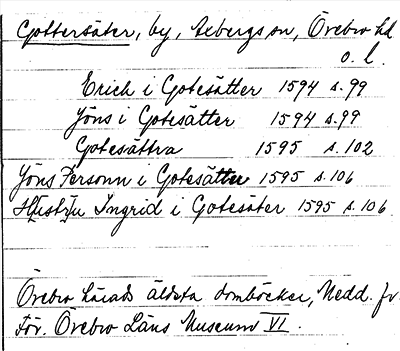 Gottersäter, by, Axbergs sn, Örebro hd
o. l.
Erich i Gotesätter 1594 s. 99
Jöns i Gotesätter 1594 s. 99
Gotesättra 1595 s. 102
Jöns Personn i Gotesätter 1595 s. 106
H[ustr]u Ingrid i Gotesäter 1595 s. 106
Örebro härads äldsta domböcker, Medd. fr.
För. Örebro Läns Museum VI.